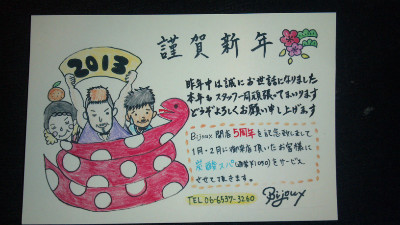 2013
謹賀新年
昨年中は誠にお世話になりました
本年もスタッフ一同頑張ってまいります
どうぞよろしくお願い申し上げます
Bijoux 開店5周年を記念致しまして
1月・2月に御来店頂いたお客様に
炭酸スパ(通常¥1050)をサービス
させて頂きます。
TEL 06-6537-3260
Bijoux